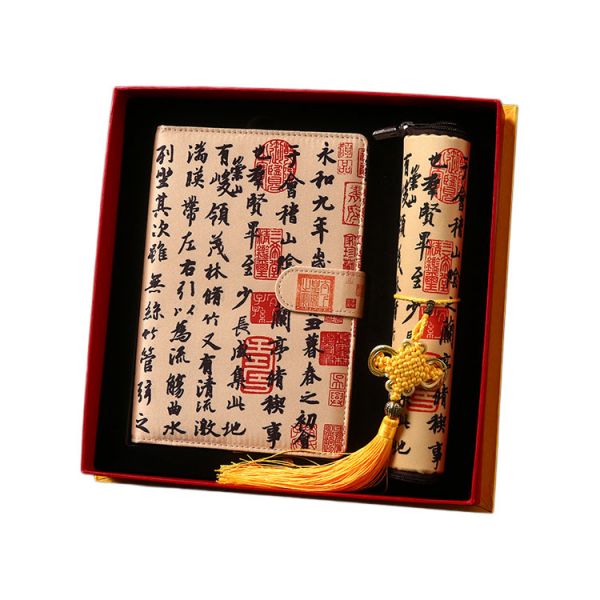 永和九年歲丑暮春之初會
于會稽山陰蘭亭脩禊事
也羣賢畢至少長咸集此地
有崇山峻領茂林脩竹又有清流激
湍暎帶左右引以為流觴曲水
列坐其次雖無絲竹管弦之
會稽山陰蘭亭脩禊事
也羣賢畢至少此地